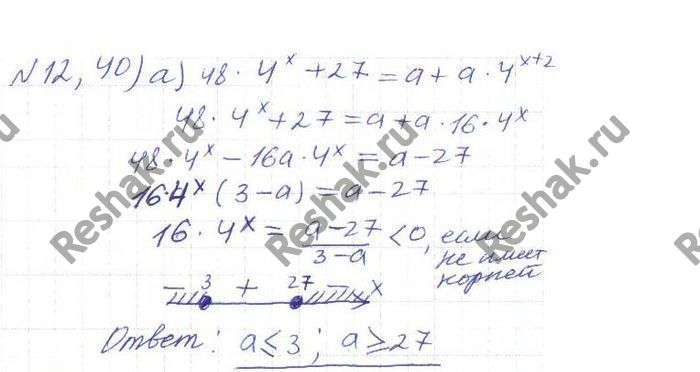 N 12,40) а) 48 · 4^x + 27 = a + a · 4^{x+2}
48 · 4^x + 27 = a + a · 16 · 4^x
48 · 4^x − 16a · 4^x = a − 27
16 · 4^x (3 − a) = a − 27
16 · 4^x = \frac{a − 27}{3 − a} < 0, если
не имеет
корней
− 3 + 27 − x
Ответ: a ≤ 3 ; a ≥ 27
Reshak.ru
Reshak.ru
Reshak.ru
Reshak.ru
ru